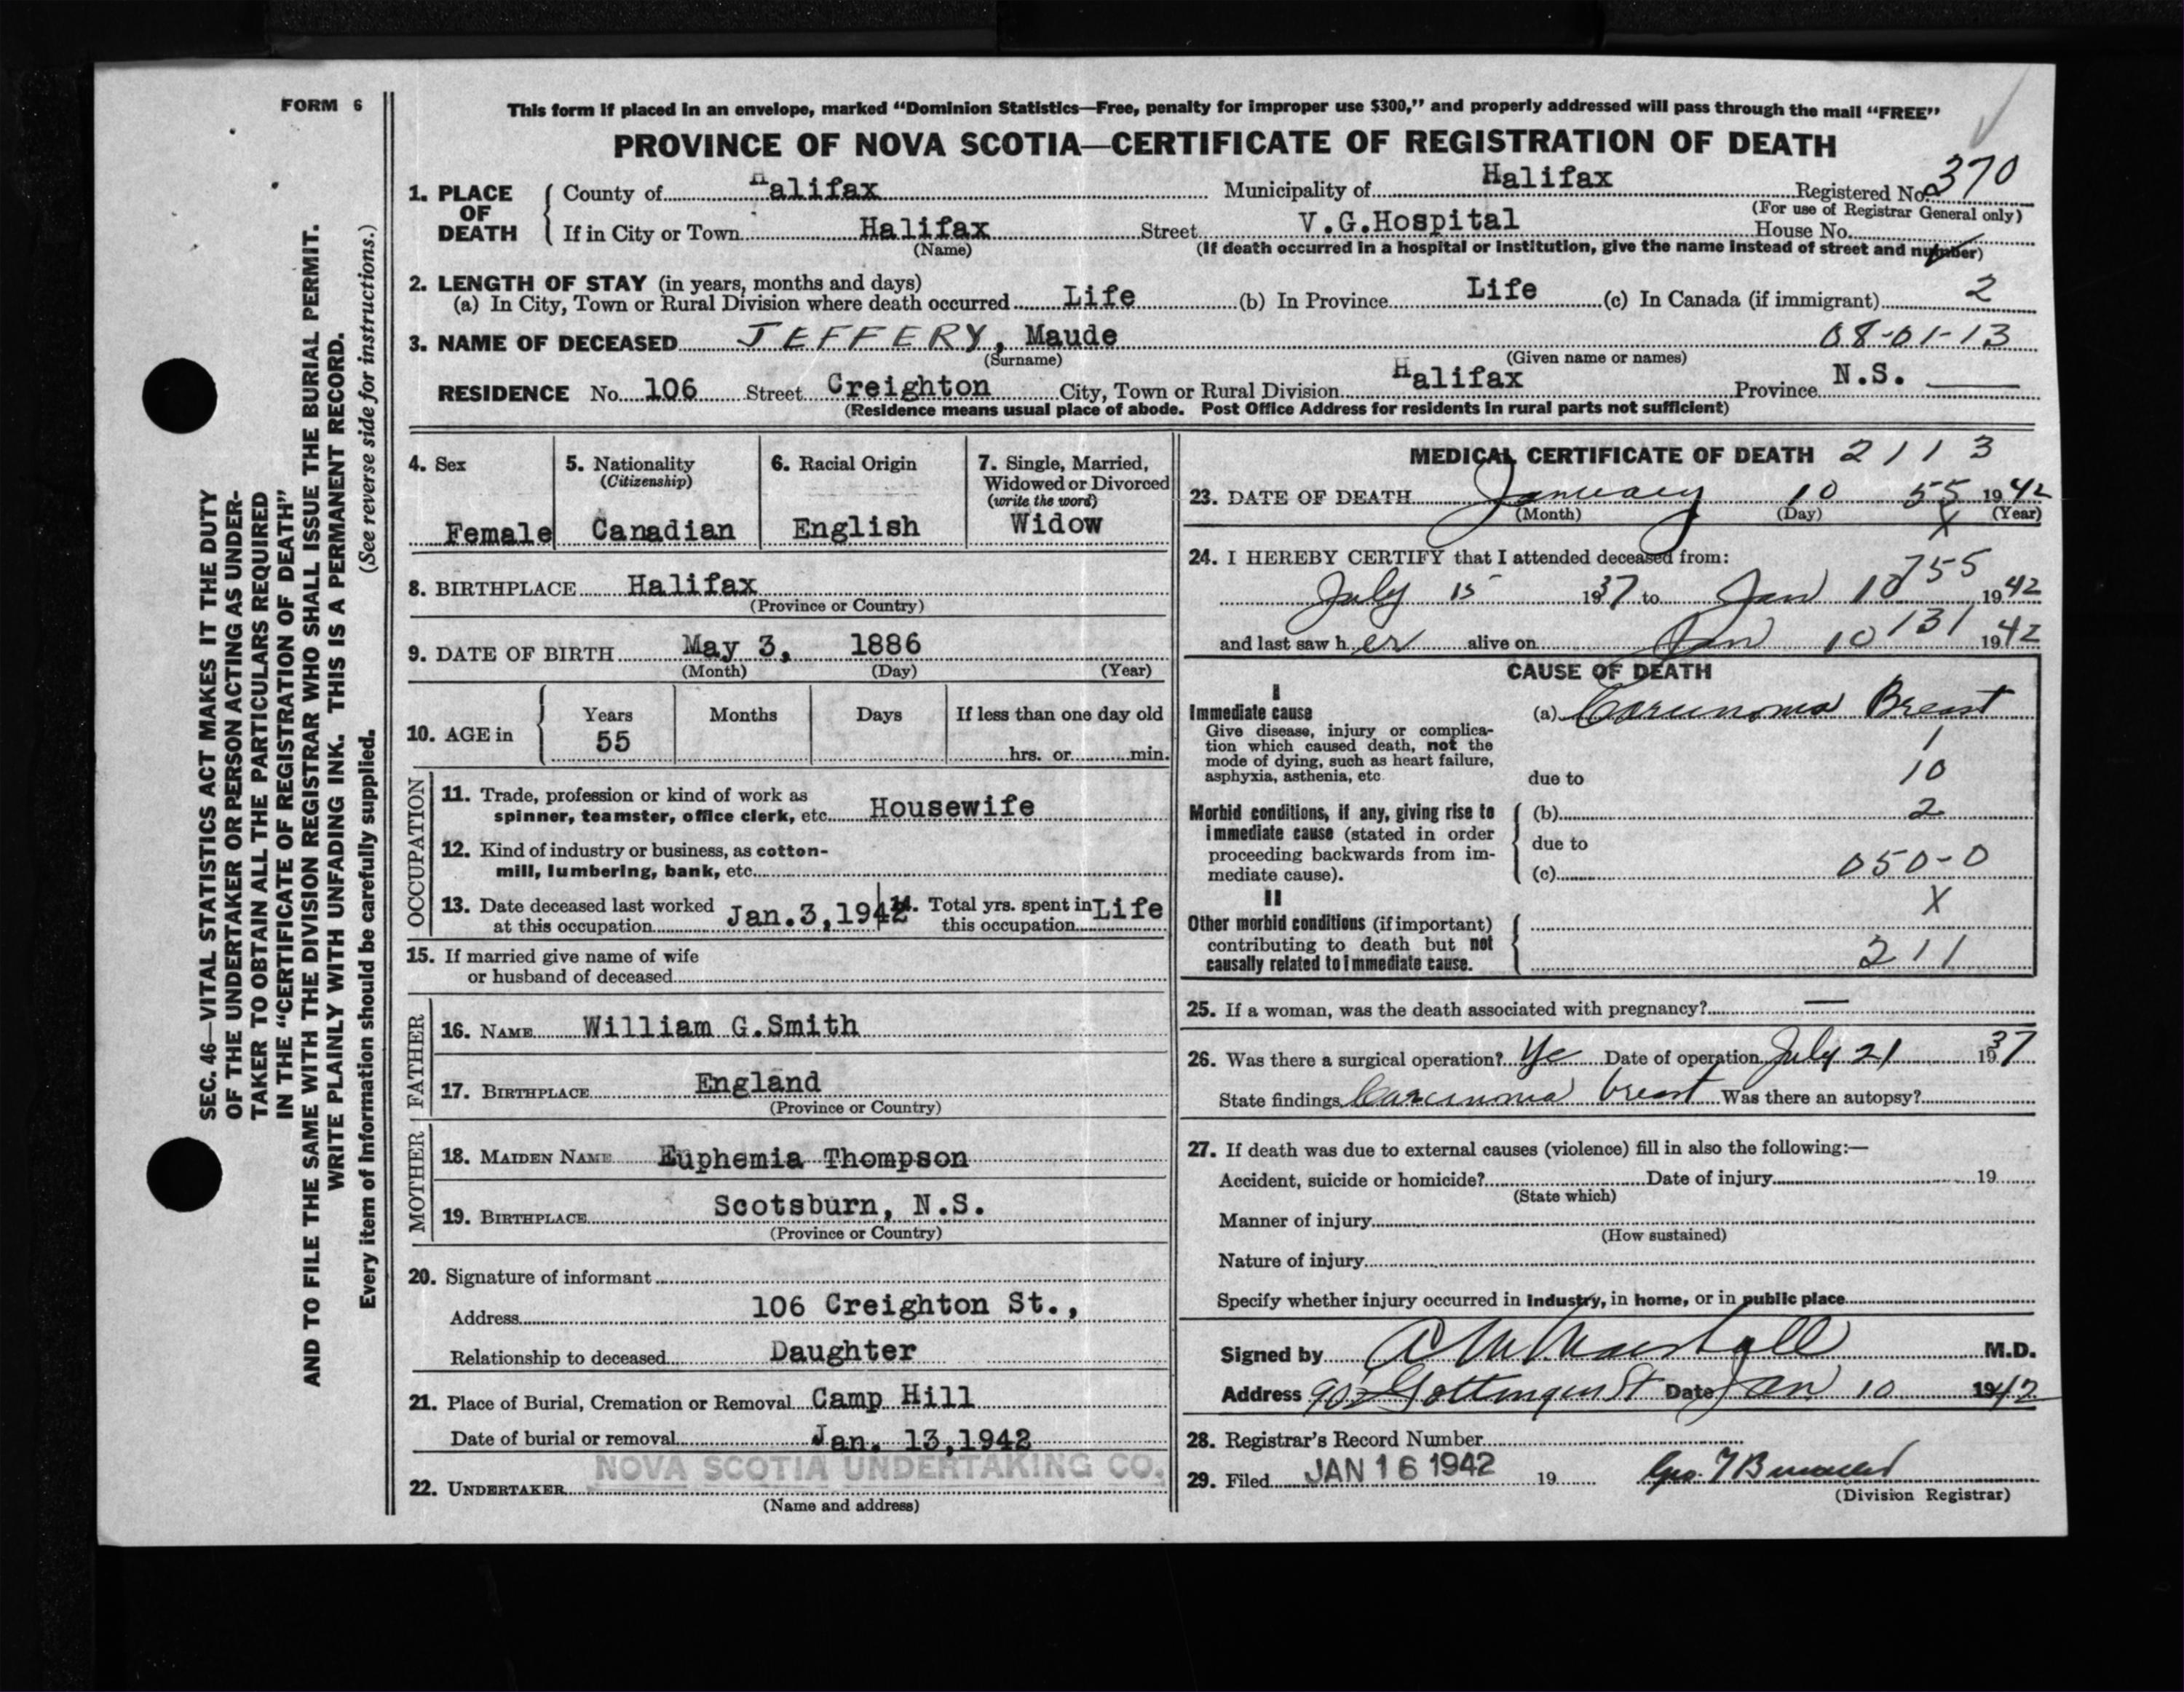 FORM 6
This form if placed in an envelope, marked “Dominion Statistics—Free, penalty for improper use $300,” and properly addressed will pass through the mail “FREE”
PROVINCE OF NOVA SCOTIA—CERTIFICATE OF REGISTRATION OF DEATH
1. PLACE OF DEATH County of Halifax Municipality of Halifax Registered No. 370
(For use of Registrar General only)
If in City or Town Halifax Street V.G.Hospital House No.
(Name) (If death occurred in a hospital or institution, give the name instead of street and number)
2. LENGTH OF STAY (in years, months and days)
(a) In City, Town or Rural Division where death occurred Life (b) In Province Life (c) In Canada (if immigrant) 2
3. NAME OF DECEASED JEFFERY, Maude 08-01-13
(Surname) (Given name or names)
RESIDENCE No. 106 Street Creighton City, Town or Rural Division Halifax Province N.S.
(Residence means usual place of abode. Post Office Address for residents in rural parts not sufficient)
4. Sex
Female
5. Nationality
(Citizenship)
Canadian
6. Racial Origin
English
7. Single, Married,
Widowed or Divorced
(write the word)
Widow
8. BIRTHPLACE Halifax
(Province or Country)
9. DATE OF BIRTH May 3, 1886
(Month) (Day) (Year)
10. AGE in
Years Months Days If less than one day old
55
hrs. or min.
OCCUPATION
11. Trade, profession or kind of work as
spinner, teamster, office clerk, etc. Housewife
12. Kind of industry or business, as cotton-
mill, lumbering, bank, etc.
13. Date deceased last worked
at this occupation Jan.3,1942
14. Total yrs. spent in
this occupation Life
15. If married give name of wife
or husband of deceased
FATHER
16. NAME William G.Smith
17. BIRTHPLACE England
(Province or Country)
MOTHER
18. MAIDEN NAME Euphemia Thompson
19. BIRTHPLACE Scotsburn, N.S.
(Province or Country)
20. Signature of informant
Address 106 Creighton St.,
Relationship to deceased Daughter
21. Place of Burial, Cremation or Removal Camp Hill
Date of burial or removal Jan. 13,1942
NOVA SCOTIA UNDERTAKING CO.
22. UNDERTAKER
(Name and address)
MEDICAL CERTIFICATE OF DEATH 2113
23. DATE OF DEATH January 10 55 1942
(Month) (Day) X (Year)
24. I HEREBY CERTIFY that I attended deceased from:
755
July 15 1937 to Jan 10 1942
131
and last saw her alive on Jan 10 1942
CAUSE OF DEATH
I
Immediate cause
Give disease, injury or complica-
tion which caused death, not the
mode of dying, such as heart failure,
asphyxia, asthenia, etc
(a) Carcinoma Breast
1
due to 10
Morbid conditions, if any, giving rise to
immediate cause (stated in order
proceeding backwards from im-
mediate cause).
(b) 2
due to
(c) 050-0
X
II
Other morbid conditions (if important)
contributing to death but not
causally related to immediate cause.
211
25. If a woman, was the death associated with pregnancy? —
26. Was there a surgical operation? Yes Date of operation July 21 1937
State findings Carcinoma breast Was there an autopsy?
27. If death was due to external causes (violence) fill in also the following:—
Accident, suicide or homicide? Date of injury 19
(State which)
Manner of injury
(How sustained)
Nature of injury
Specify whether injury occurred in industry, in home, or in public place
Signed by Marshall M.D.
Address Gottingen St Date Jan 10 1942
28. Registrar's Record Number
29. Filed JAN 16 1942 19
(Division Registrar)
SEC. 46—VITAL STATISTICS ACT MAKES IT THE DUTY
OF THE UNDERTAKER OR PERSON ACTING AS UNDER-
TAKER TO OBTAIN ALL THE PARTICULARS REQUIRED
IN THE “CERTIFICATE OF REGISTRATION OF DEATH”
AND TO FILE THE SAME WITH THE DIVISION REGISTRAR WHO SHALL ISSUE THE BURIAL PERMIT.
WRITE PLAINLY WITH UNFADING INK. THIS IS A PERMANENT RECORD.
Every item of Information should be carefully supplied. (See reverse side for instructions.)